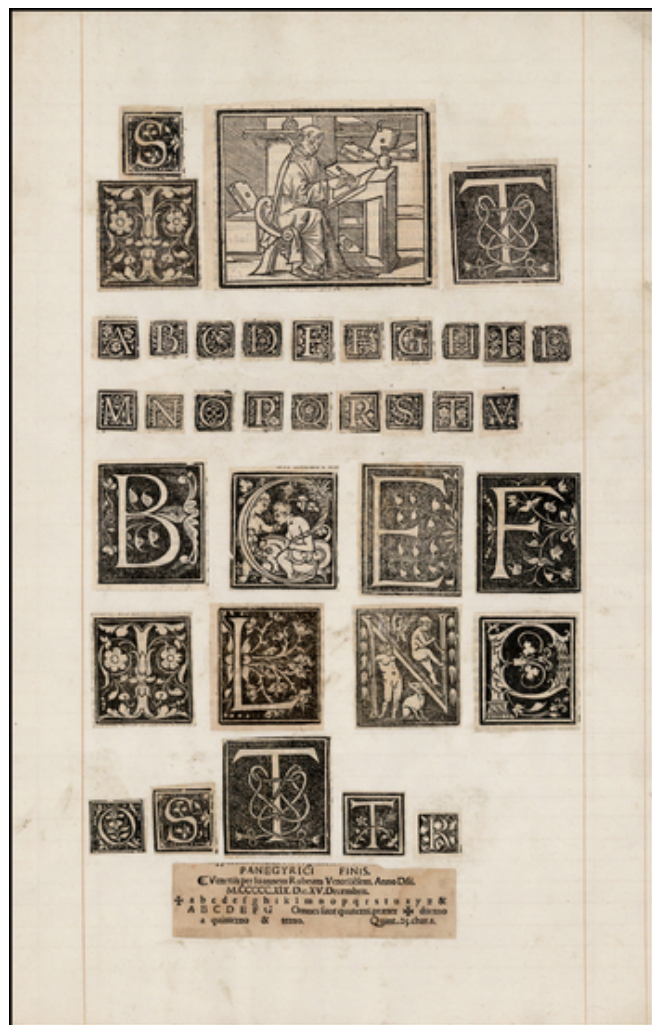 S
I
T
A B C D E F G H I L
M N O P Q R S T V
B C E F
I L N C
Q S T T R
PANEGYRICI FINIS.
Venetiis per Ioannem Rubeum Vercellésem. Anno Dñi.
M.CCCCC.XIX. Die.XV. Decembris.
✠ a b c d e f g h i k l m n o p q r s t u x y z &
A B C D E F G Omnes sunt quaterni præter ✠ duerno
a quinterno & terno. Quint. 25. char. 1.